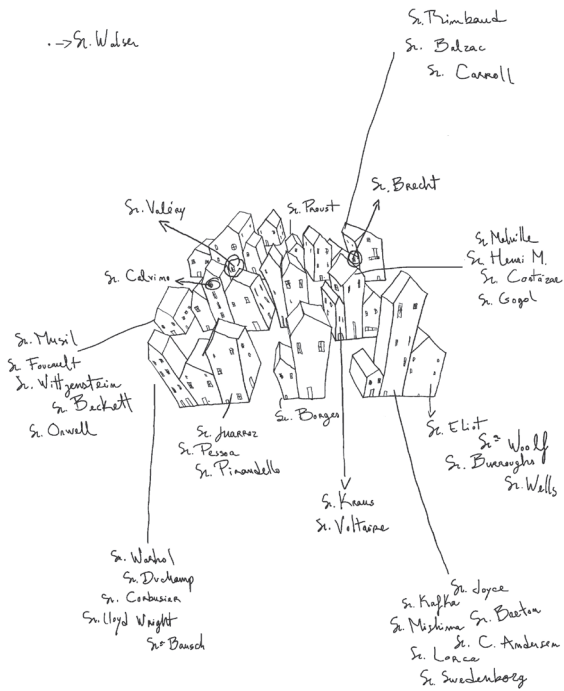 Sr. Rimbaud
Sr. Balzac
Sr. Carroll
Sr. Walser
Sr. Brecht
Sr. Valéry
Sr. Proust
Sr. Calvino
Sr. Melville
Sr. Henri M.
Sr. Cortázar
Sr. Gogol
Sr. Musil
Sr. Foucault
Sr. Wittgenstein
Sr. Beckett
Sr. Orwell
Sr. Juarroz
Sr. Pessoa
Sr. Pirandello
Sr. Borges
Sr. Eliot
Srª Woolf
Sr. Burroughs
Sr. Wells
Sr. Kraus
Sr. Voltaire
Sr. Warhol
Sr. Duchamp
Sr. Corbusier
Sr. Lloyd Wright
Srª Bausch
Sr. Joyce
Sr. Kafka
Sr. Breton
Sr. Mishima
Sr. C. Andersen
Sr. Lorca
Sr. Swedenborg